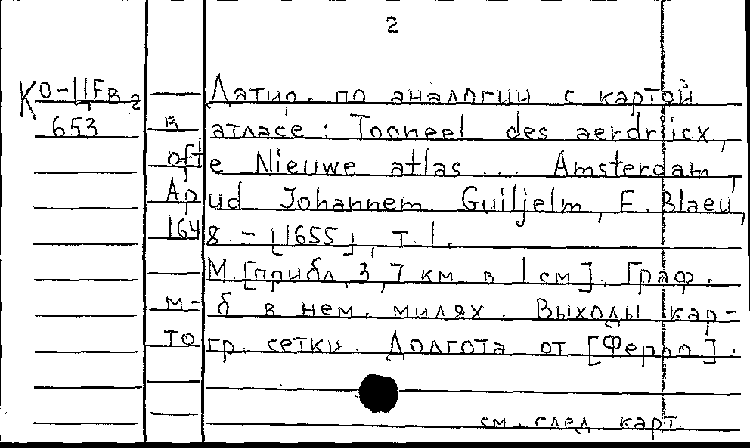 2
Ко-IIFв 2 Датир. по аналогии с картой
653 в атласе: Tooneel des aerdrijcx,
ofte Nieuwe atlas ... Amsterdam,
Apud Johannem Guiljelm, F. Blaeu,
1648 - [1655], т. 1.
М. [прибл. 3,7 км в 1 см]. Граф.
м-б в нем. милях. Выходы кар-
тогр. сетки. Долгота от [Ферро].
см. след. карт